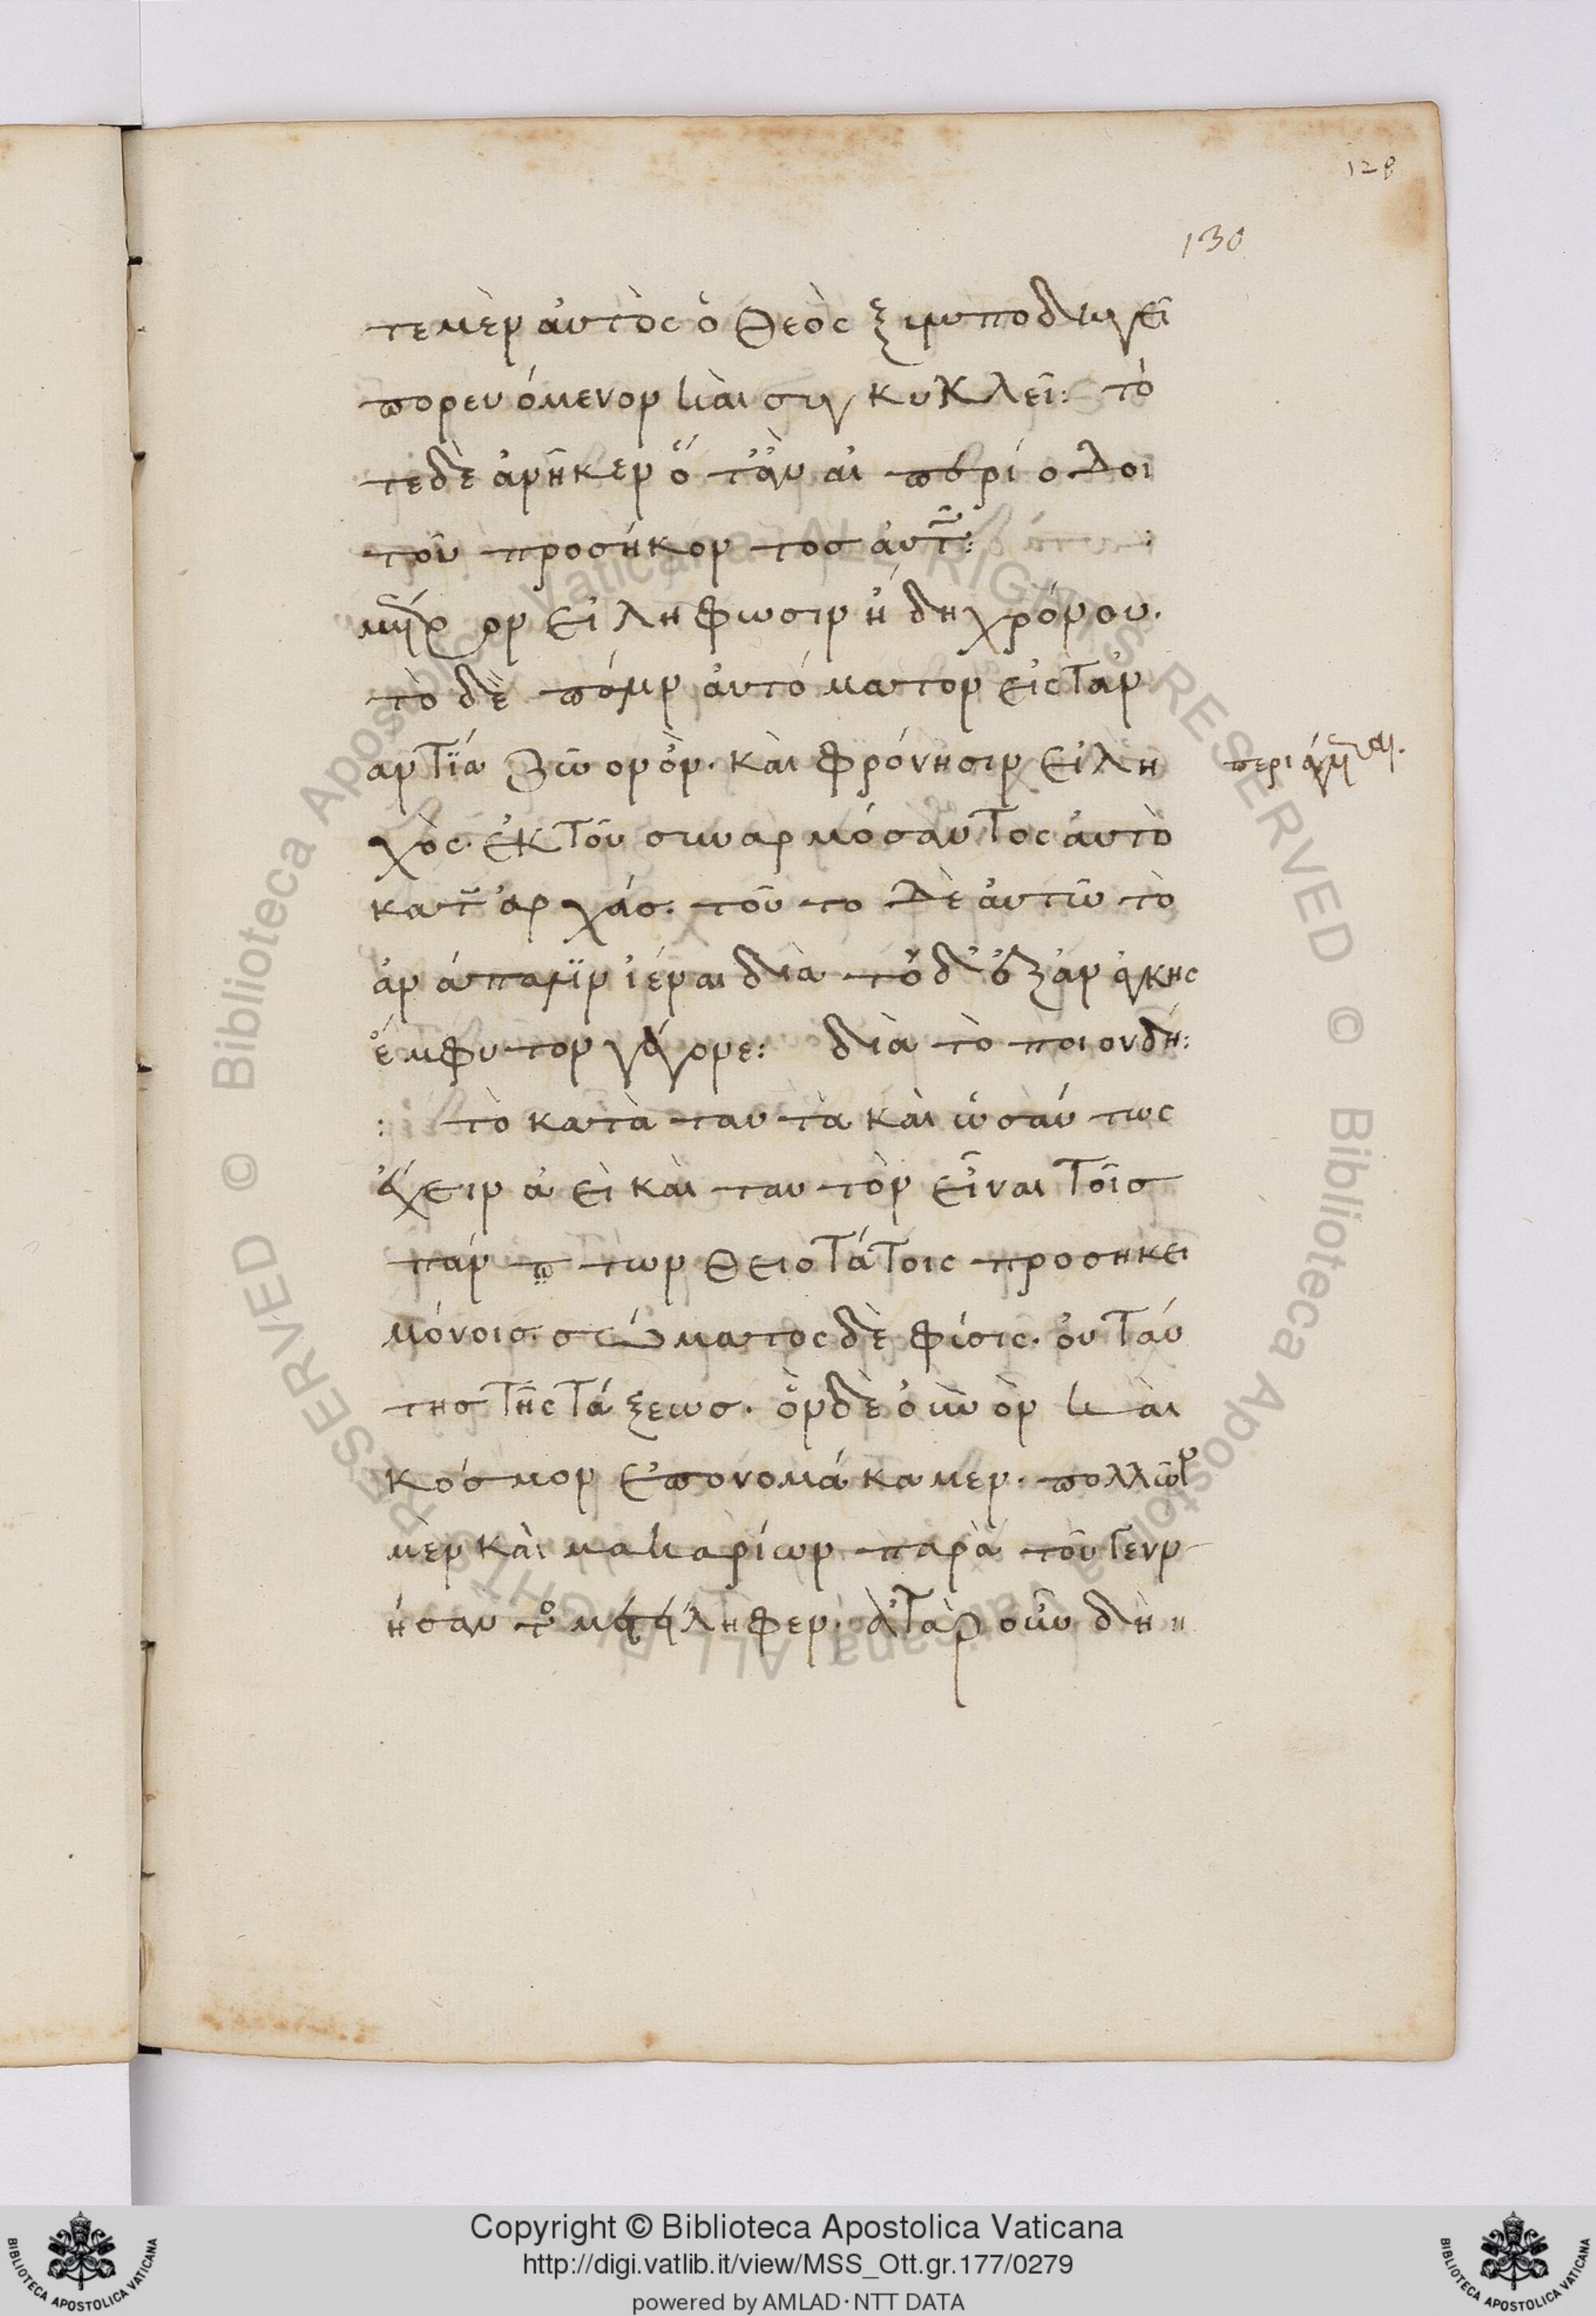 128
130
τε μὲν αὐτὸς ὁ θεὸς ξυμποδηγεῖ
πορευόμενον καὶ συγκυκλεῖ: τό
τε δὲ ἀνῆκεν ὅταν αἱ περίοδοι
τοῦ προσήκοντος αὐτῶ:
μέτρον εἰλήφωσιν ἤδη χρόνου.
τὸ δὲ πάλιν αὐτόματον εἰς τἀν
αντία ζῶον ὂν. καὶ φρόνησιν εἰλη
χὸς ἐκ τοῦ συναρμόσαντος αὐτὸ
κατ' ἀρχάσ. τοῦτο δὲ αὐτῶ τὸ
ἀνάπαλιν ἰέναι διὰ τόδ' ἐξ ἀνάγκης
ἔμφυτον γέγονε: διὰ τὸ ποῖον δή:
: τὸ κατὰ ταυτὰ καὶ ὡσαύτως
ἔχειν ἀεὶ καὶ ταυτὸν εἶναι τοῖσ
πάντων θειοτάτοις προσήκει
μόνοισ. σώματος δὲ φύσις. οὐ ταύ
τησ τῆς τάξεωσ. ὃν δὲ οὐνὸν καὶ
κόσμον ἐπονομάκαμεν. πολλῶν
μὲν καὶ μακαρίων παρὰ τοῦ γενν
ήσαντος μετείληφεν. ἀτὰρ οὖν δὴ
Copyright © Biblioteca Apostolica Vaticana
http://digi.vatlib.it/view/MSS_Ott.gr.177/0279
powered by AMLAD·NTT DATA
BIBLIOTECA APOSTOLICA VATICANA
BIBLIOTECA APOSTOLICA VATICANA